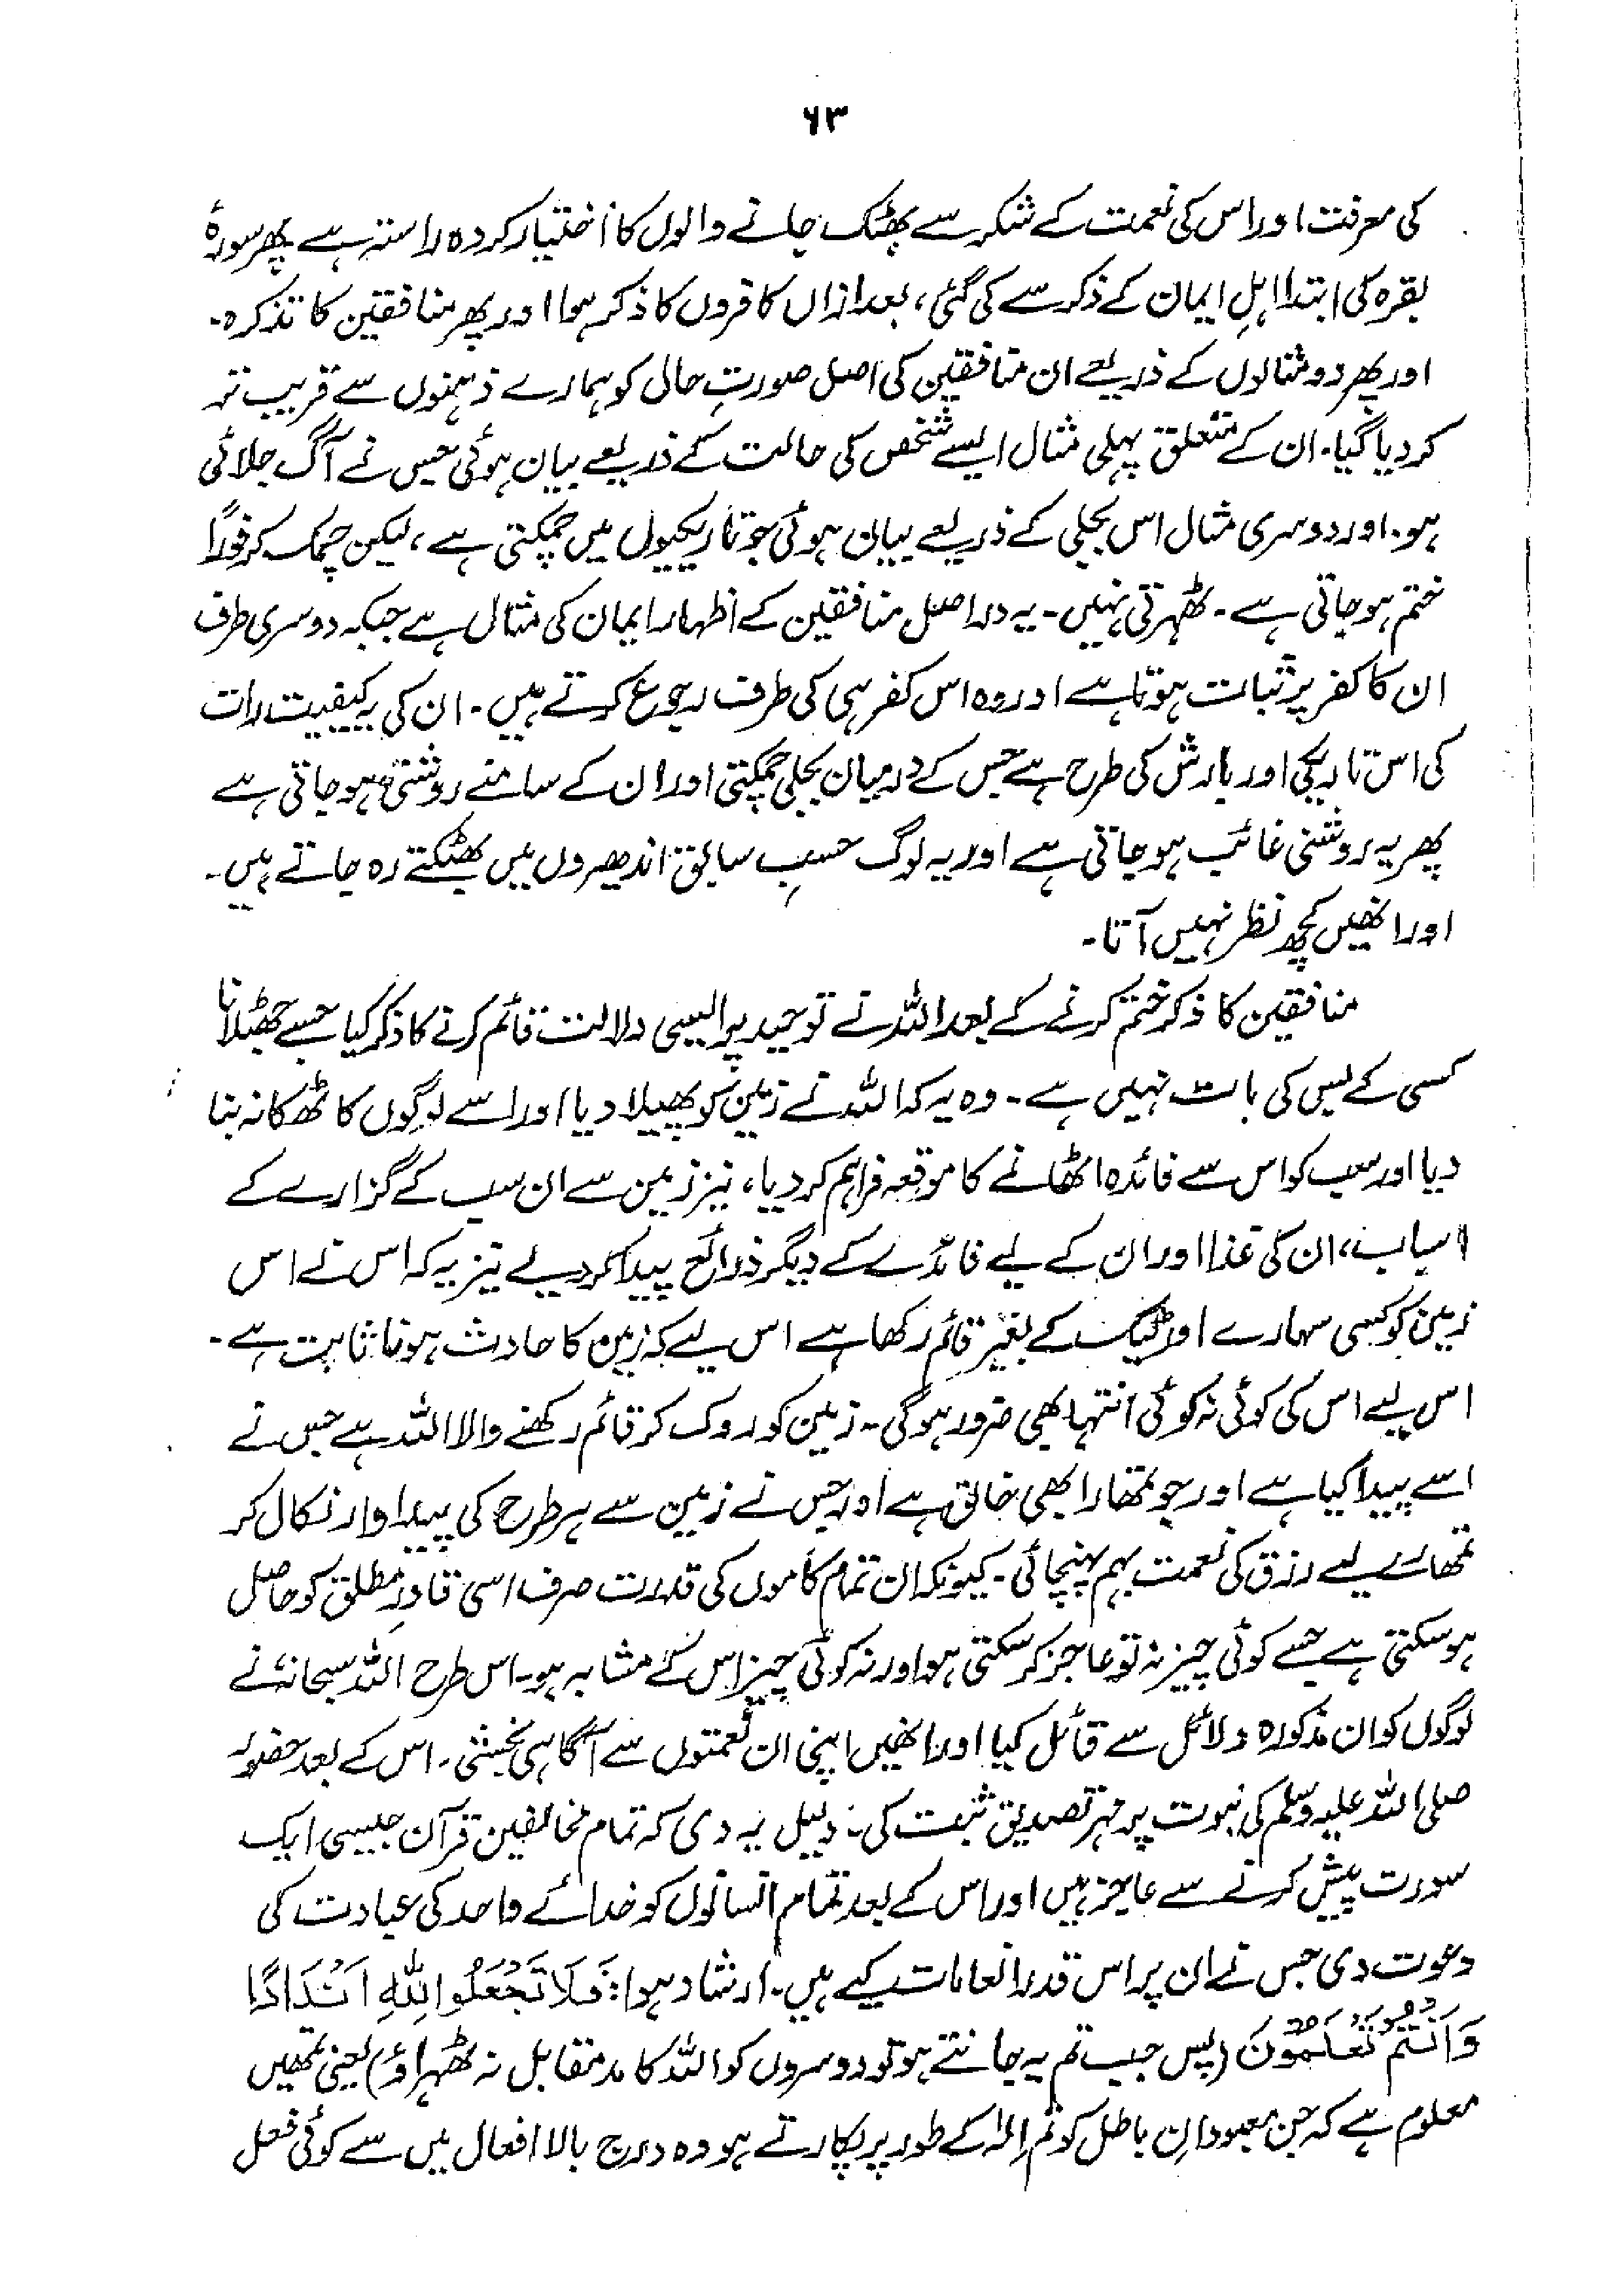 ۶۳
کی معرفت اور اس کی نعمت کے شکر سے بھٹک جانے والوں کا اختیار کردہ راستہ ہے پھر سورۂ
بقرہ کی ابتدا اہلِ ایمان کے ذکر سے کی گئی، بعد ازاں کافروں کا ذکر ہوا اور پھر منافقین کا تذکرہ۔
اور پھر دو مثالوں کے ذریعے ان منافقین کی اصل صورتِ حال کو ہمارے ذہنوں سے قریب تر
کر دیا گیا۔ ان کے متعلق پہلی مثال ایسے شخص کی حالت کے ذریعے بیان ہوئی جس نے آگ جلائی
ہو۔ اور دوسری مثال اس بجلی کے ذریعے بیان ہوئی جو تاریکیوں میں چمکتی ہے، لیکن چمک کر فوراً
ختم ہو جاتی ہے۔ ٹھہرتی نہیں۔ یہ دراصل منافقین کے اظہارِ ایمان کی مثال ہے جبکہ دوسری طرف
ان کا کفر پر ثبات ہوتا ہے اور وہ اس کفر ہی کی طرف رجوع کرتے ہیں۔ ان کی یہ کیفیت رات
کی اس تاریکی اور بارش کی طرح ہے جس کے درمیان بجلی چمکتی اور ان کے سامنے روشنی ہو جاتی ہے
پھر یہ روشنی غائب ہو جاتی ہے اور یہ لوگ حسبِ سابق اندھیروں میں بھٹکتے رہ جاتے ہیں۔
اور انھیں کچھ نظر نہیں آتا۔
منافقین کا ذکر ختم کرنے کے بعد اللہ نے توحید پر ایسی دلالت قائم کرنے کا ذکر کیا جسے جھٹلانا
کسی کے بس کی بات نہیں ہے۔ وہ یہ کہ اللہ نے زمین کو پھیلا دیا اور اسے لوگوں کا ٹھکانہ بنا
دیا اور سب کو اس سے فائدہ اٹھانے کا موقعہ فراہم کر دیا، نیز زمین سے ان سب کے گزارے کے
اسباب، ان کی غذا اور ان کے لیے فائدے کے دیگر ذرائع پیدا کر دیے نیز یہ کہ اس نے اس
زمین کو کسی سہارے اور ٹیک کے بغیر قائم رکھا ہے اس لیے کہ زمین کا حادث ہونا ثابت ہے۔
اس لیے اس کی کوئی نہ کوئی انتہا بھی ضرور ہو گی۔ زمین کو روک کر قائم رکھنے والا اللہ ہے جس نے
اسے پیدا کیا ہے اور جو تمھارا بھی خالق ہے اور جس نے زمین سے ہر طرح کی پیداوار نکال کر
تمھارے لیے رزق کی نعمت بہم پہنچائی۔ کیونکہ ان تمام کاموں کی قدرت صرف اسی قادرِ مطلق کو حاصل
ہو سکتی ہے جسے کوئی چیز نہ تو عاجز کر سکتی ہو اور نہ کوئی چیز اس کے مشابہ ہو۔ اس طرح اللہ سبحانہٗ نے
لوگوں کو ان مذکورہ دلائل سے قائل کیا اور انھیں اپنی ان نعمتوں سے آگاہی بخشی۔ اس کے بعد حضور
صلی اللہ علیہ وسلم کی نبوت پر مہرِ تصدیق ثبت کی۔ دلیل یہ دی کہ تمام مخالفین قرآن جیسی ایک
سورت پیش کرنے سے عاجز ہیں اور اس کے بعد تمام انسانوں کو خدائے واحد کی عبادت کی
دعوت دی جس نے ان پر اس قدر انعامات کیے ہیں۔ ارشاد ہوا: فَلَا تَجْعَلُوا لِلّٰهِ اَنْدَادًا
وَاَنْتُمْ تَعْلَمُوْنَ (پس جب تم یہ جانتے ہو تو دوسروں کو اللہ کا مدمقابل نہ ٹھہراؤ) یعنی تمھیں
معلوم ہے کہ جن معبودانِ باطل کو تم اِلٰہ کے طور پر پکارتے ہو وہ درج بالا افعال میں سے کوئی فعل